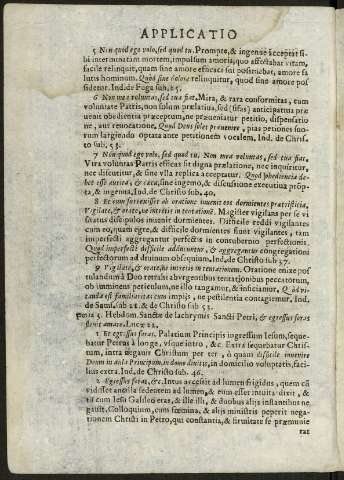 APPLICATIO
5 Non quod ego volo, sed quod tu. Prompte, & ingenue acceptat si-
bi interminatam mortem, impulsum amoris, quo assectabar vitam,
facile relinquit, quam sine amore efficace sui postriebat, amore sa
lutis hominum. Quod sine dolore relinquitur, quod sine amore pos
sidetur. Ind. de Fuga sub. 25.
6 Non mea voluntas, sed tua fiat. Mira, & rara conformitas, cum
voluntate Patris, non solum prælatiua, sed anticipatiua præ
uenit obedientia præceptum, ne præueniatur petitio, dispensatio
ne, aut reuocatione. Quod Deus solet præuenire, pias petiones suo-
rum largiendo optata ante petitionem vocalem. Ind. de Christo
sub. 53.
7 Non quod ego volo, sed quod tu. Non mea voluntas, sed tua fiat.
Vira voluntas Patris efficax sit digna prælatione, nec inquiritur,
nec discutitur, & sine vlla replica acceptatur. Quod obediencia de-
bet esse autita, & cæca, sine ingenio, & discussione executiua promp-
ta, & ingenua. Ind. de Christo sub. 40.
8 Et cum surrexisset ab oratione inuenit eos dormientes præ tristitia,
Vigilate, & orate, ne intretis in tentationem. Magister vigilans per se vi
sitatus discipulos inuenit dormientes. Difficile reddi vigilantes
cum eo, quam egrè, & difficile dormientes fiunt vigilantes, tam
imperfecti aggregantur perfectis in contubernio perfectionis.
Quod imperfecti difficile adduntur, & aggregantur congregationi
perfectorum ad diuinum obsequium. Ind. de Christo sub 37.
9 Vigilate, & orate, ne intretis in tentationem. Oratione enixe pos
tulandum à Deo remedi abuergentibus tentationibus peccatorum,
ob imminens periculum, ne illo tangamur, & inficiamur. Quod vi-
tanda est familiaritas cum impijs, ne pestilentia contagiemur. Ind.
de Saul. sub 28. & de Christo sub 51.
Feria 5. Hebdom. Sanctæ de lachrymis Sancti Petri, & egressus foras
fleuit amare. Lucæ 22.
1 Et egressus foras. Palatium Principis ingressum Iesum, seque-
batur Petrus à longe, vsque intro, &c. Extra sequebatur Chris-
tum, intra negauit Christum per ter, ò quam difficile inuenire
Deum in aula Principum, in domo diuitis, in domicilio voluptatis, faci-
lius extra. Ind. de Christo sub. 46.
2 Egressus foras, &c. Intus accessit ad lumen frigidus, quem cũ
vidisset ancilla sedentem ad lumen, & eum esset intuita dixit, &
tu cum Iesu Galileo eras, & ille illi, & duobus alijs instantibus ne
gauit, Colloquium, cum fœmina, & alijs ministris peperit nega-
tionem Christi in Petro, qui constantia, & firmitate se præmunie
rat